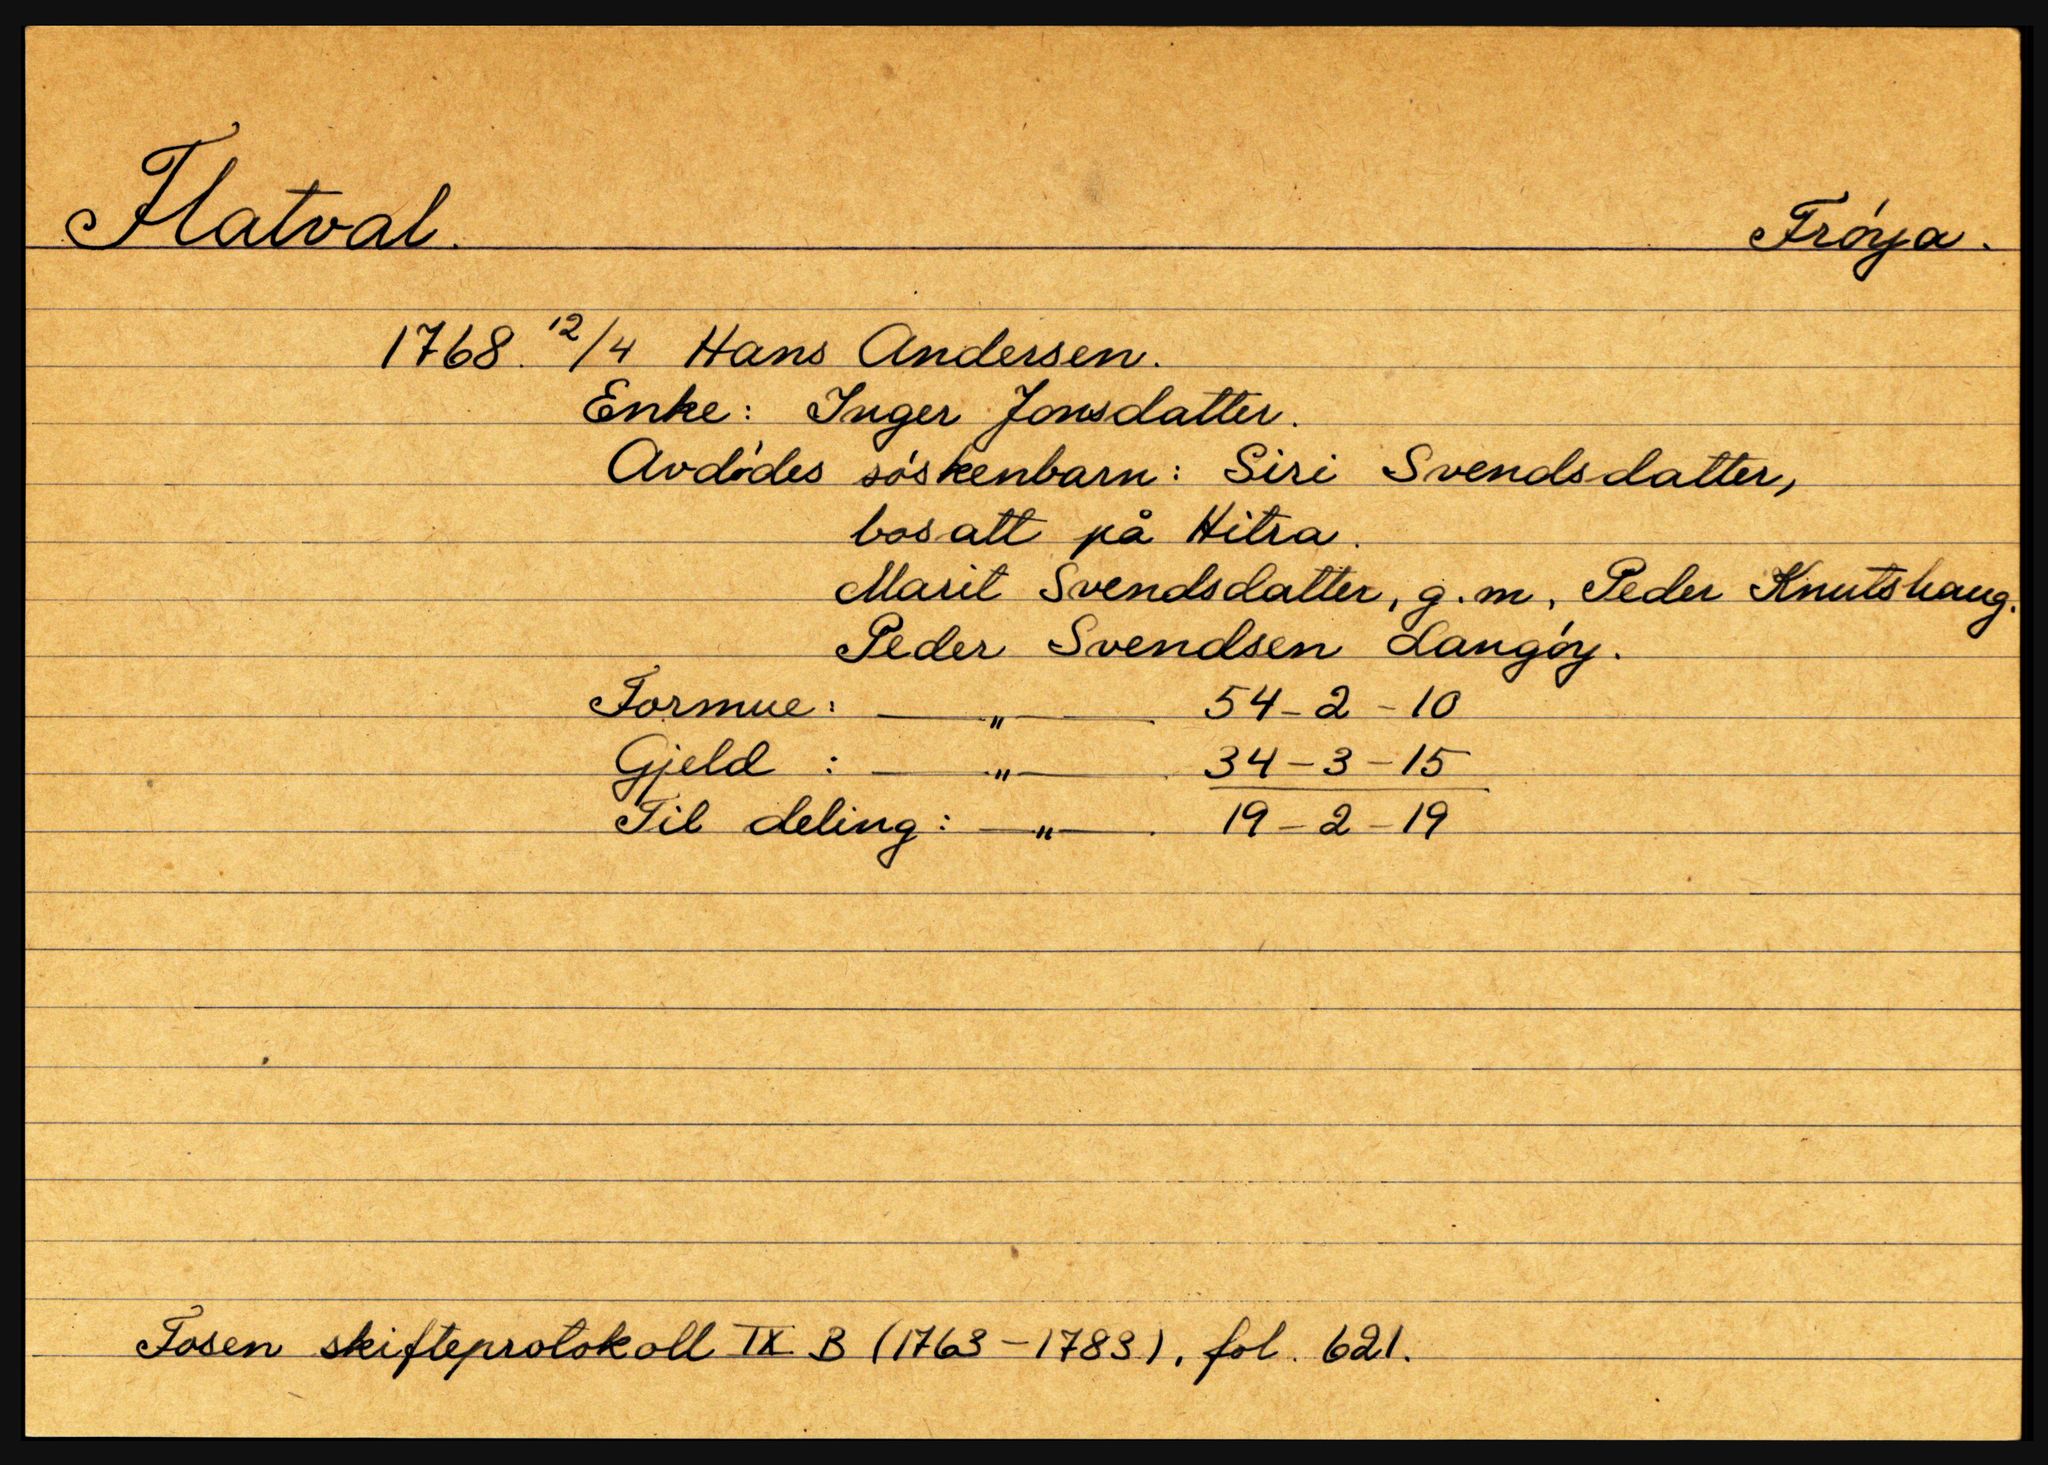 Flatval. Frøya.
1768. 12/4 Hans Andersen.
Enke: Inger Jonsdatter.
Avdødes søskenbarn: Siri Svendsdatter,
bosatt på Hitra.
Marit Svendsdatter, g.m. Peder Knutshaug.
Peder Svendsen Langøy.
Formue: — " — 54-2-10
Gjeld : — " — 34-3-15
Til deling: — " — 19-2-19
Fosen skifteprotokoll IX B (1763-1783), fol. 621.